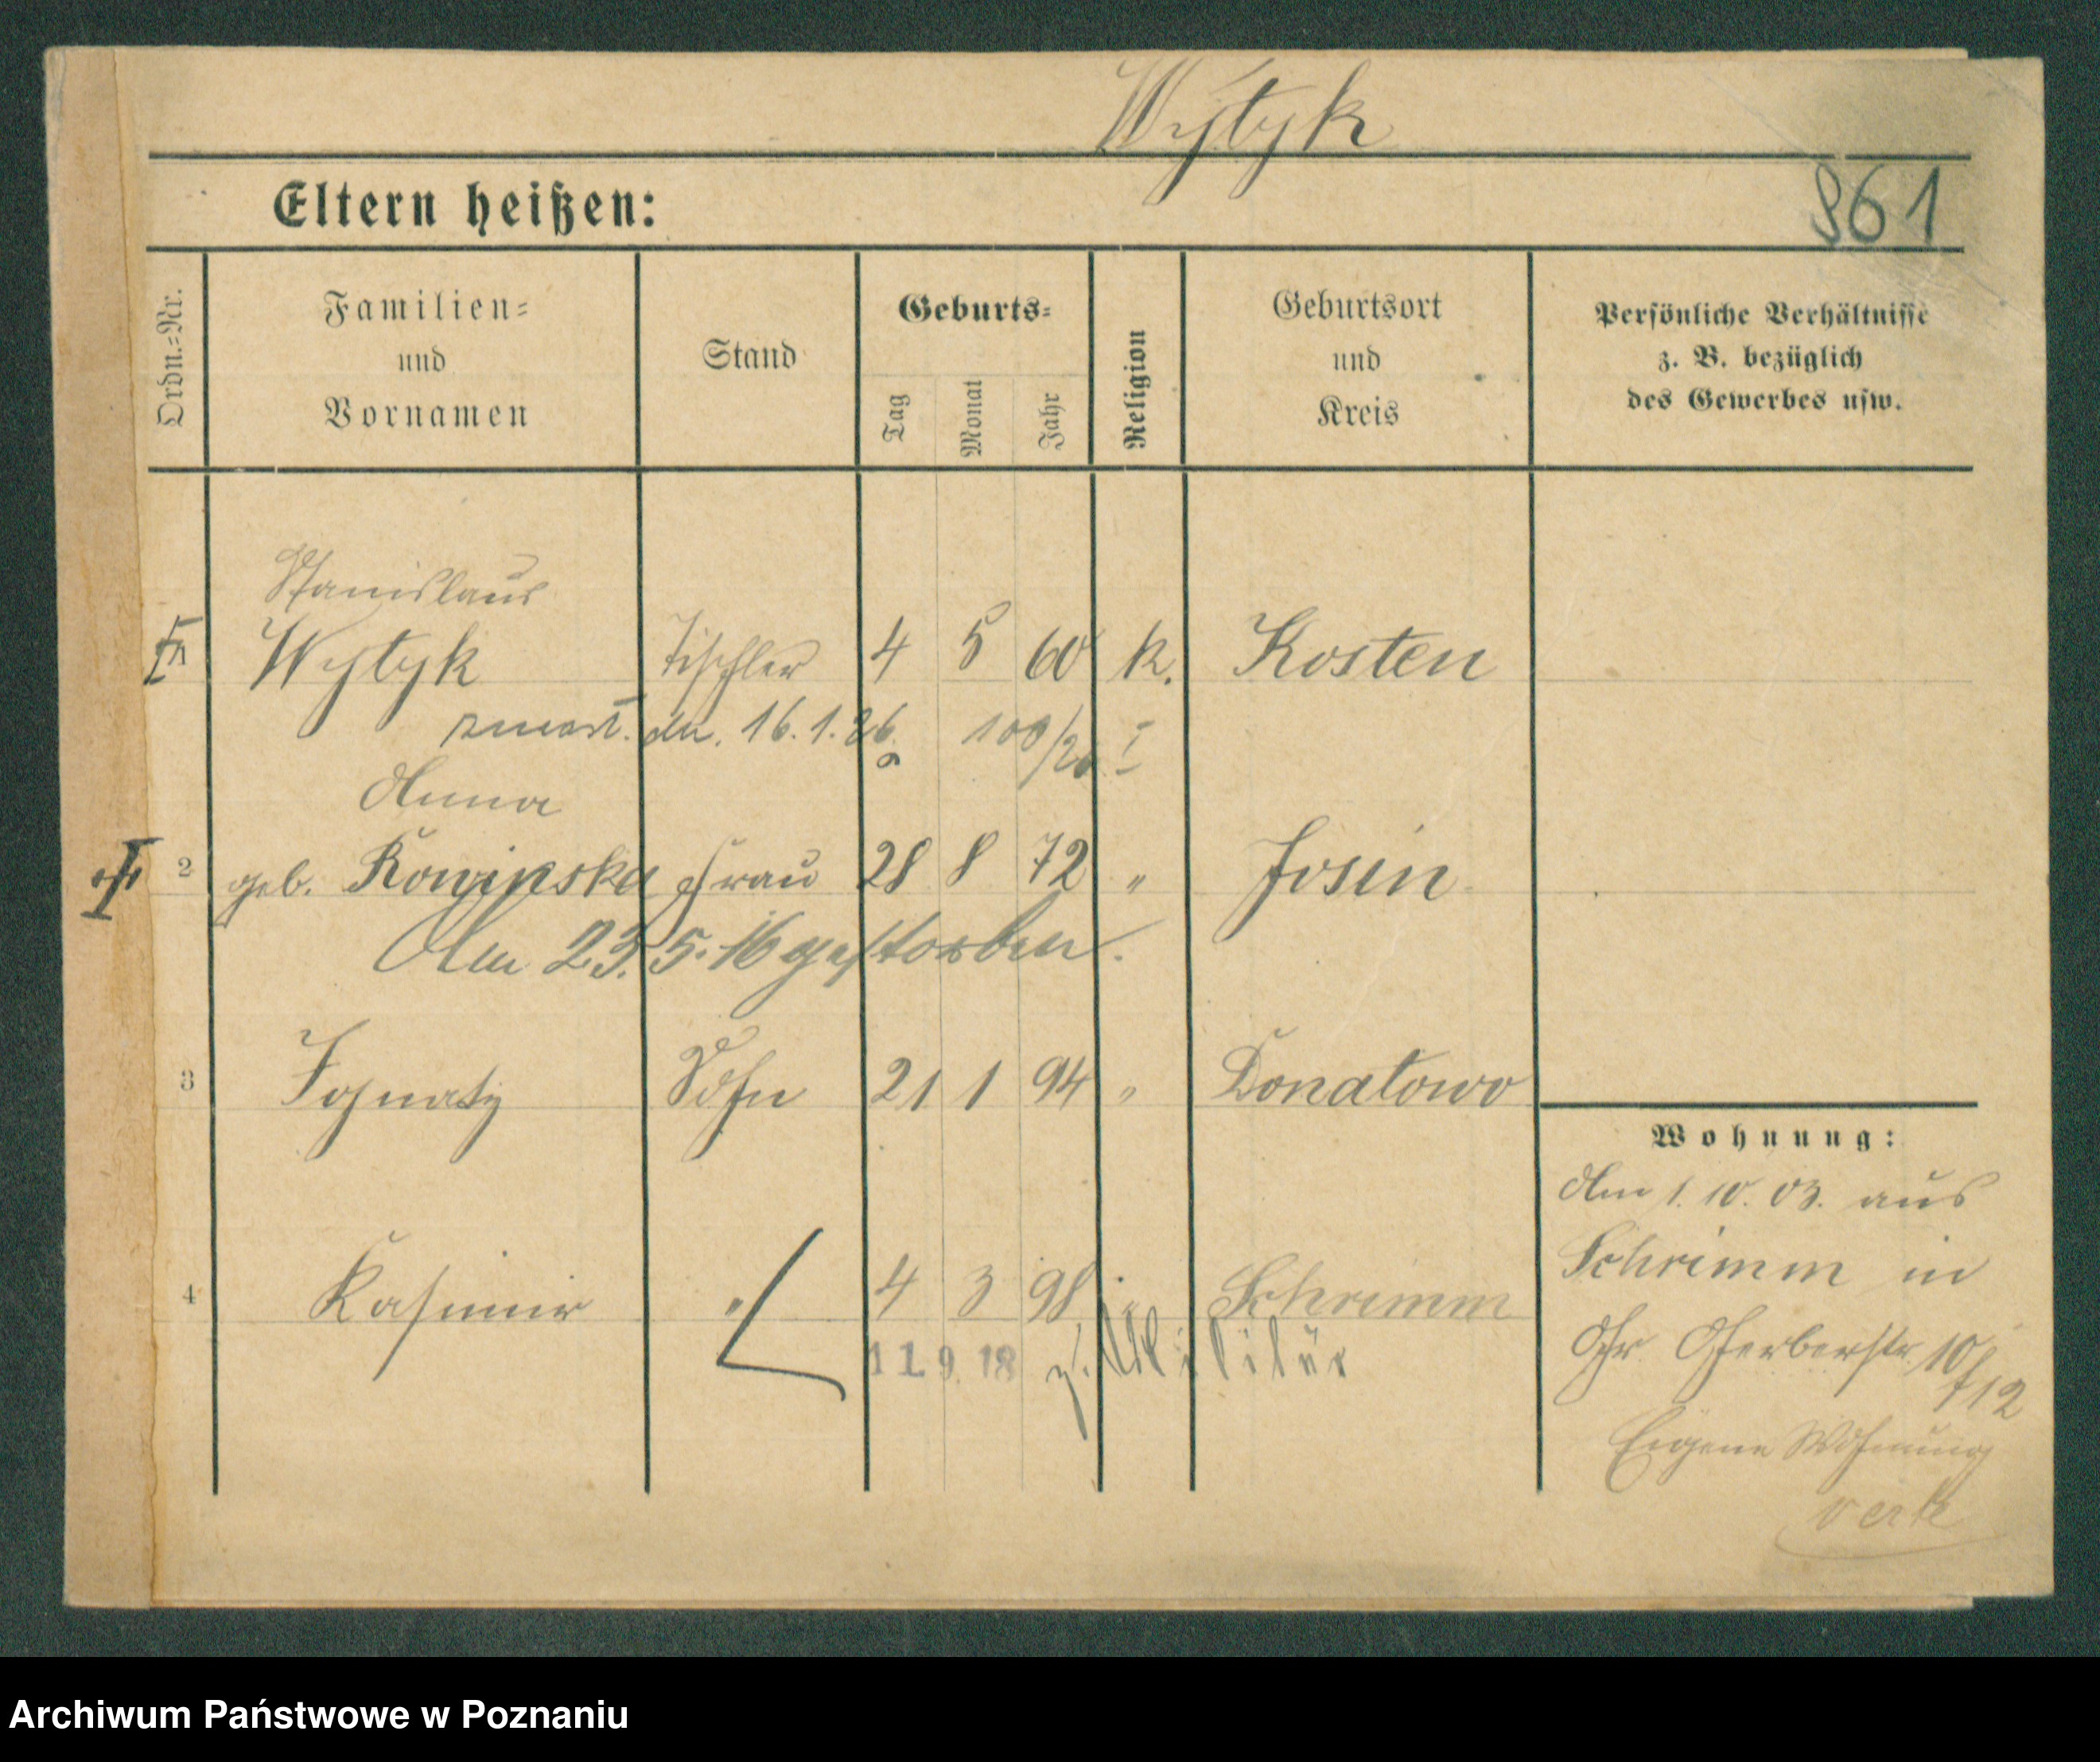 Wytyk
Eltern heißen:
861
Ordn.-Nr.
Familien-
und
Vornamen
Stand
Geburts-
Tag
Monat
Jahr
Religion
Geburtsort
und
Kreis
Persönliche Verhältnisse
z. B. bezüglich
des Gewerbes usw.
Stanislaus
Wytyk Tischler 4 5 60 k. Kosten
zmarł. dn. 16.1.26. 100/26 I
Anna
2 geb. Frau 28 8 72 " Josin
Am 23.5.16 gestorben.
3 Ignatz Sohn 21 1 94 " Donatowo
Wohnung:
Am 1. 10. 03. aus
Schrimm in
Gr. Gerberstr. 10/12
Eigene Wohnung
4 Kasimir " 4 3 98 " Schrimm
11 9. 18 z. Militär
Archiwum Państwowe w Poznaniu